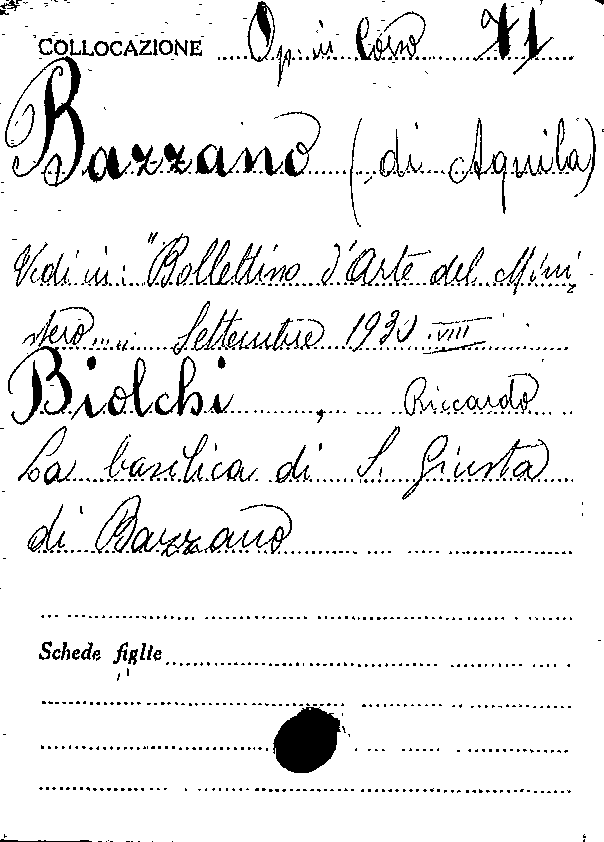 COLLOCAZIONE Op. in Corso 71
Bazzano (di Aquila)
Vedi in: "Bollettino d'Arte del Mini
stero...„ Settembre 1930 VIII
Biolchi, Riccardo
La basilica di S. Giusta
di Bazzano
Schede figlie